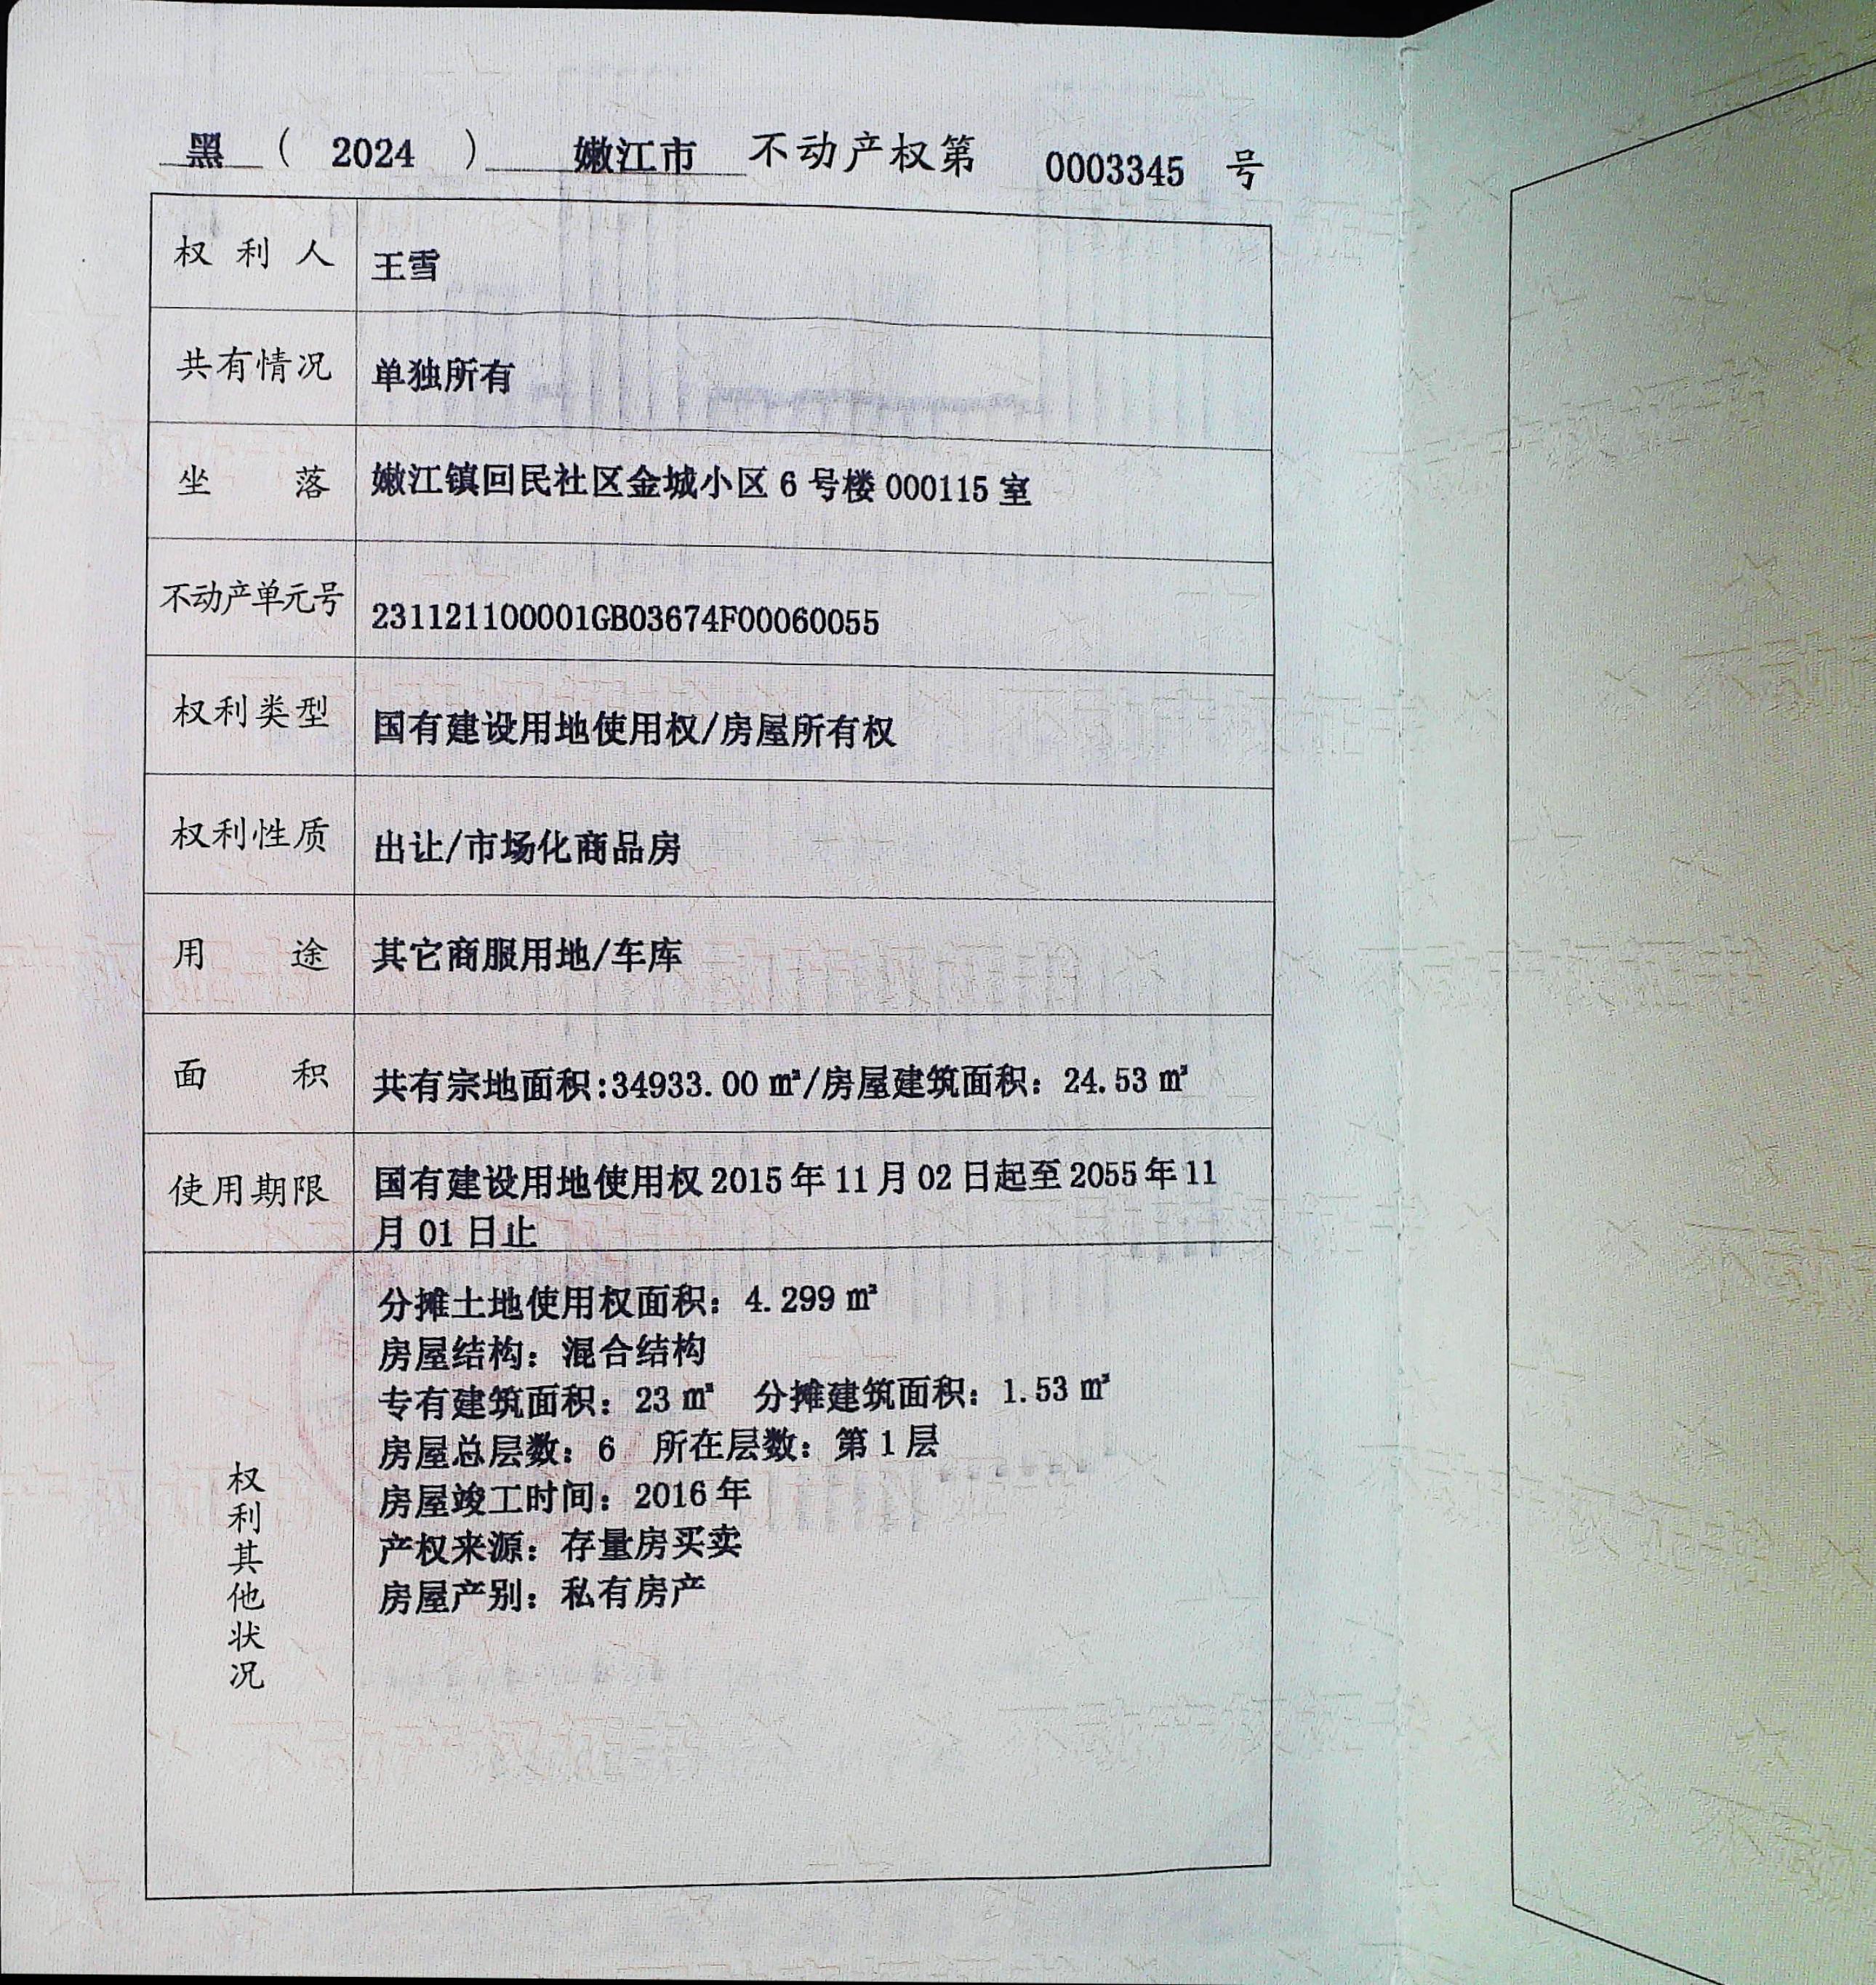 黑 ( 2024 ) 嫩江市 不动产权第 0003345 号
权利人 王雪
共有情况 单独所有
坐落 嫩江镇回民社区金城小区 6 号楼 000115 室
不动产单元号 231121100001GB03674F00060055
权利类型 国有建设用地使用权/房屋所有权
权利性质 出让/市场化商品房
用途 其它商服用地/车库
面积 共有宗地面积:34933.00 ㎡/房屋建筑面积：24.53 ㎡
使用期限 国有建设用地使用权 2015 年 11 月 02 日起至 2055 年 11
月 01 日止
权利其他状况
分摊土地使用权面积：4.299 ㎡
房屋结构：混合结构
专有建筑面积：23 ㎡ 分摊建筑面积：1.53 ㎡
房屋总层数：6 所在层数：第 1 层
房屋竣工时间：2016 年
产权来源：存量房买卖
房屋产别：私有房产